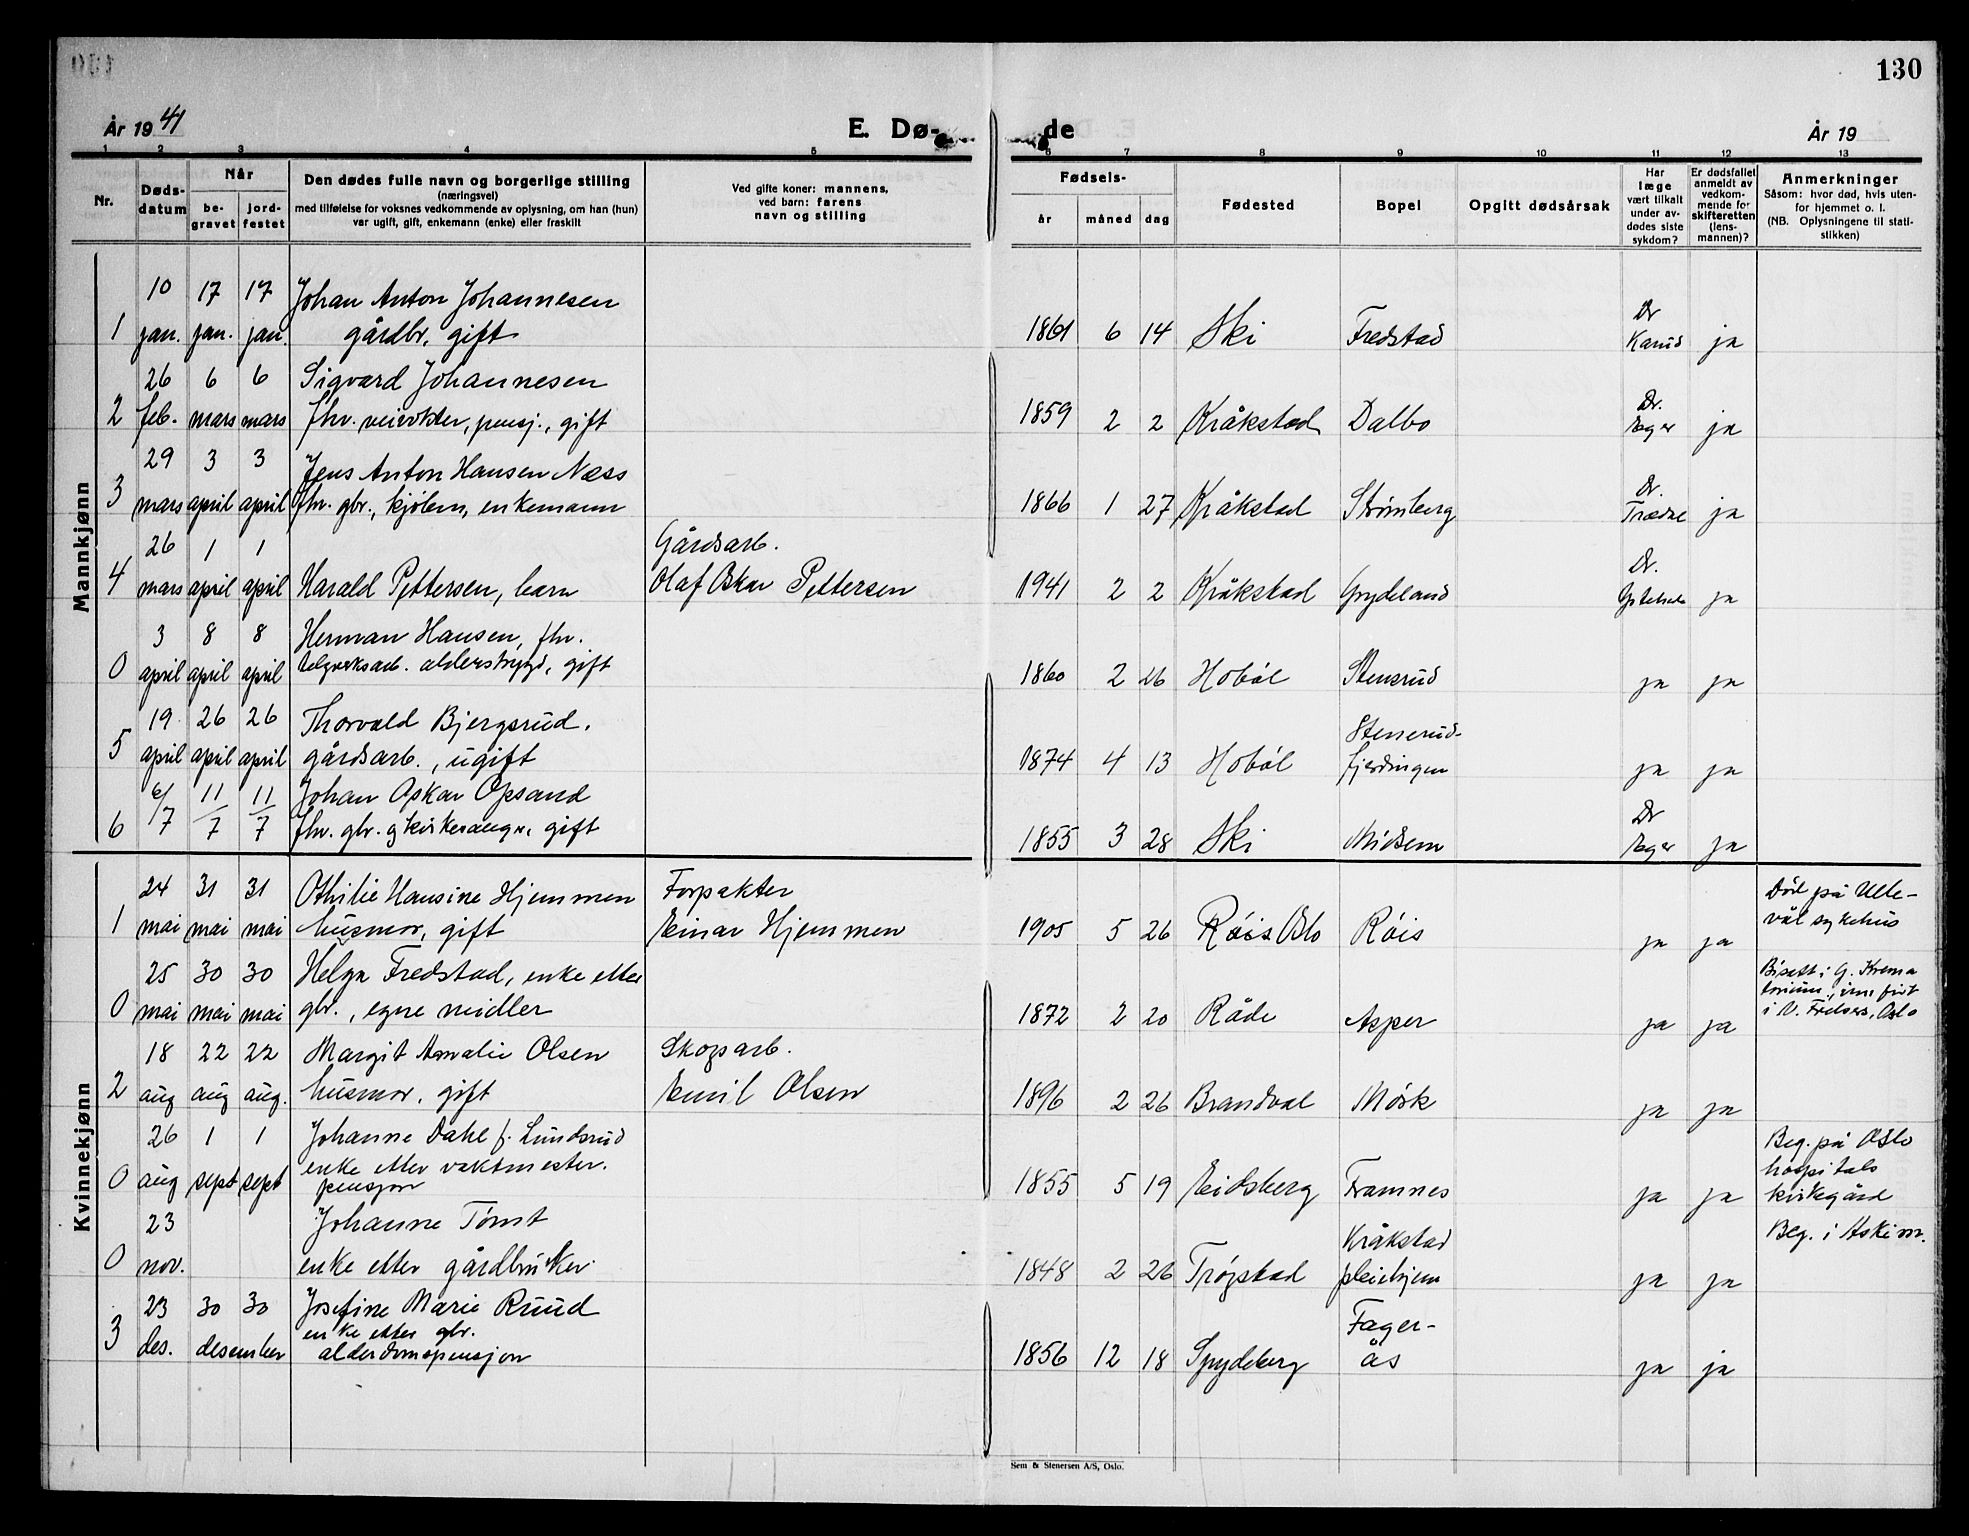 130
År 1941
E. Dø-
de
År 19
1 2 3 4 5 6 7 8 9 10 11 12 13
Nr.
Døds-
datum
Når
be-
gravet
jord-
festet
Den dødes fulle navn og borgerlige stilling
(næringsvei)
med tilføielse for voksnes vedkommende av oplysning, om han (hun)
var ugift, gift, enkemann (enke) eller fraskilt
Ved gifte koner: mannens,
ved barn: farens
navn og stilling
Fødsels-
år måned dag
Fødested
Bopel
Opgitt dødsårsak
Har
læge
vært tilkalt
under av-
dødes siste
sykdom?
Er dødsfallet
anmeldt av
vedkom-
mende for
skifteretten
(lens-
mannen)?
Anmerkninger
Såsom: hvor død, hvis uten-
for hjemmet o. l.
(NB. Oplysningene til stati-
stikken)
Mannkjønn
10 17 17 Johan Anton Johannesen
1 jan. jan. jan. gårdbr. gift 1861 6 14 Ski Fredstad Dr Karud ja
26 6 6 Sigvard Johannesen
2 feb. mars mars fhv. veivokter, pensj., gift 1859 2 2 Kråkstad Dalbo Dr. ja
29 3 3 Jens Anton Hansen Næss
3 mars april april fhv. gbr., kjølem, enkemann 1866 1 27 Kråkstad Strømberg Dr. Trædne ja
26 1 1 Gårdsarb.
4 mars april april Harald Pettersen, barn Olaf Oskar Pettersen 1941 2 2 Kråkstad Grydeland Dr. ja
3 8 8 Herman Hansen, fhv.
0 april april april alderstrygd, gift 1860 2 26 Hobøl Stensrud ja ja
19 26 26 Thorvald Bjergsrud.
5 april april april gårdsarb., ugift 1874 4 13 Hobøl Stensrud- fjerdingen ja ja
6/7 11/7 11/7 Johan Oskar Opsand
6 fhv. gbr. og kirkesanger, gift 1855 3 28 Ski Midsem Dr ja
Kvinnekjønn
24 31 31 Othilie Hansine Hjemmen Forpakter
1 mai mai mai husmor, gift Einar Hjemmen 1905 5 26 Røis Oslo Røis ja ja
Død på Ulle-
vål sykehus
25 30 30 Helga Fredstad, enke etter
0 mai mai mai gbr., egne midler 1872 2 20 Råde Asper ja ja
Bisatt i G. Krema
torium,
i V. Frelsers, Oslo
18 22 22 Margit Amalie Olsen Skogsarb.
2 aug aug aug. husmor, gift Emil Olsen 1896 2 26 Brandval Mørk ja ja
26 1 1 Johanne Dahl f. Lundsrud
enke etter vaktmester.
0 aug sept sept pensjon 1855 5 19 Eidsberg Framnes ja ja
Beg. på Oslo
hospitals
kirkegård
23 Johanne Tømt
0 nov. enke etter gårdbruker 1848 2 26 Trøgstad Kråkstad pleiehjem ja ja
Beg. i Askim.
23 30 30 Josefine Marie Ruud
enke etter gbr.
3 des. desember alderdomspensjon 1856 12 18 Spydeberg Fager- ås ja ja
Sem & Stenersen A/S, Oslo.